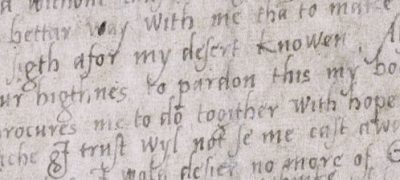 without
bettar way with me tha to make
ligth afor my desert knowen. A
ur higthnes to pardon this my bo
procures me to do togither with hope
iche I trust wyl not se me cast awa
desier no more of